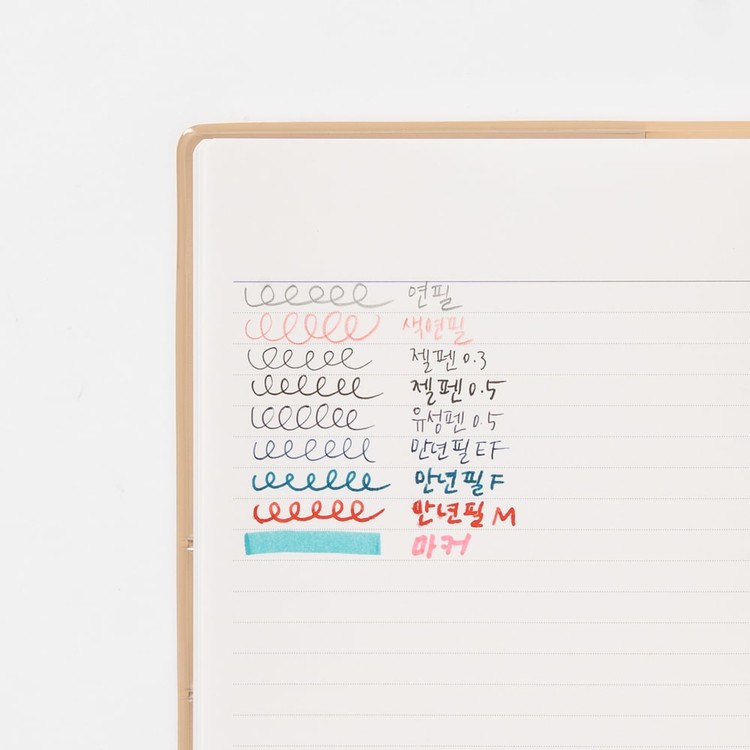 연필
색연필
젤펜 0.3
젤펜 0.5
유성펜 0.5
만년필 EF
만년필 F
만년필 M
마커